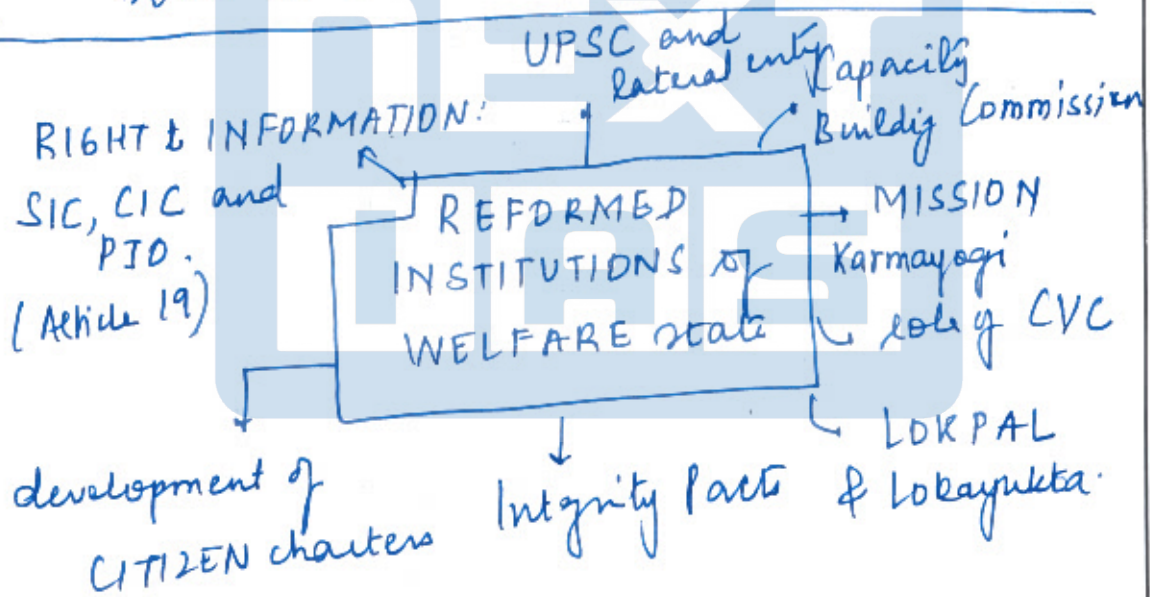 UPSC and
lateral entry
Capacity
Buildig Commission
RIGHT t INFORMATION:
SIC, CIC and
PIO.
(Article 19)
REFORMED
INSTITUTIONS of
WELFARE state
MISSION
Karmayogi
role of CVC
LOKPAL
& Lokayukta.
Integrity Pacts
development of
CITIZEN charters
NEXT
IAS